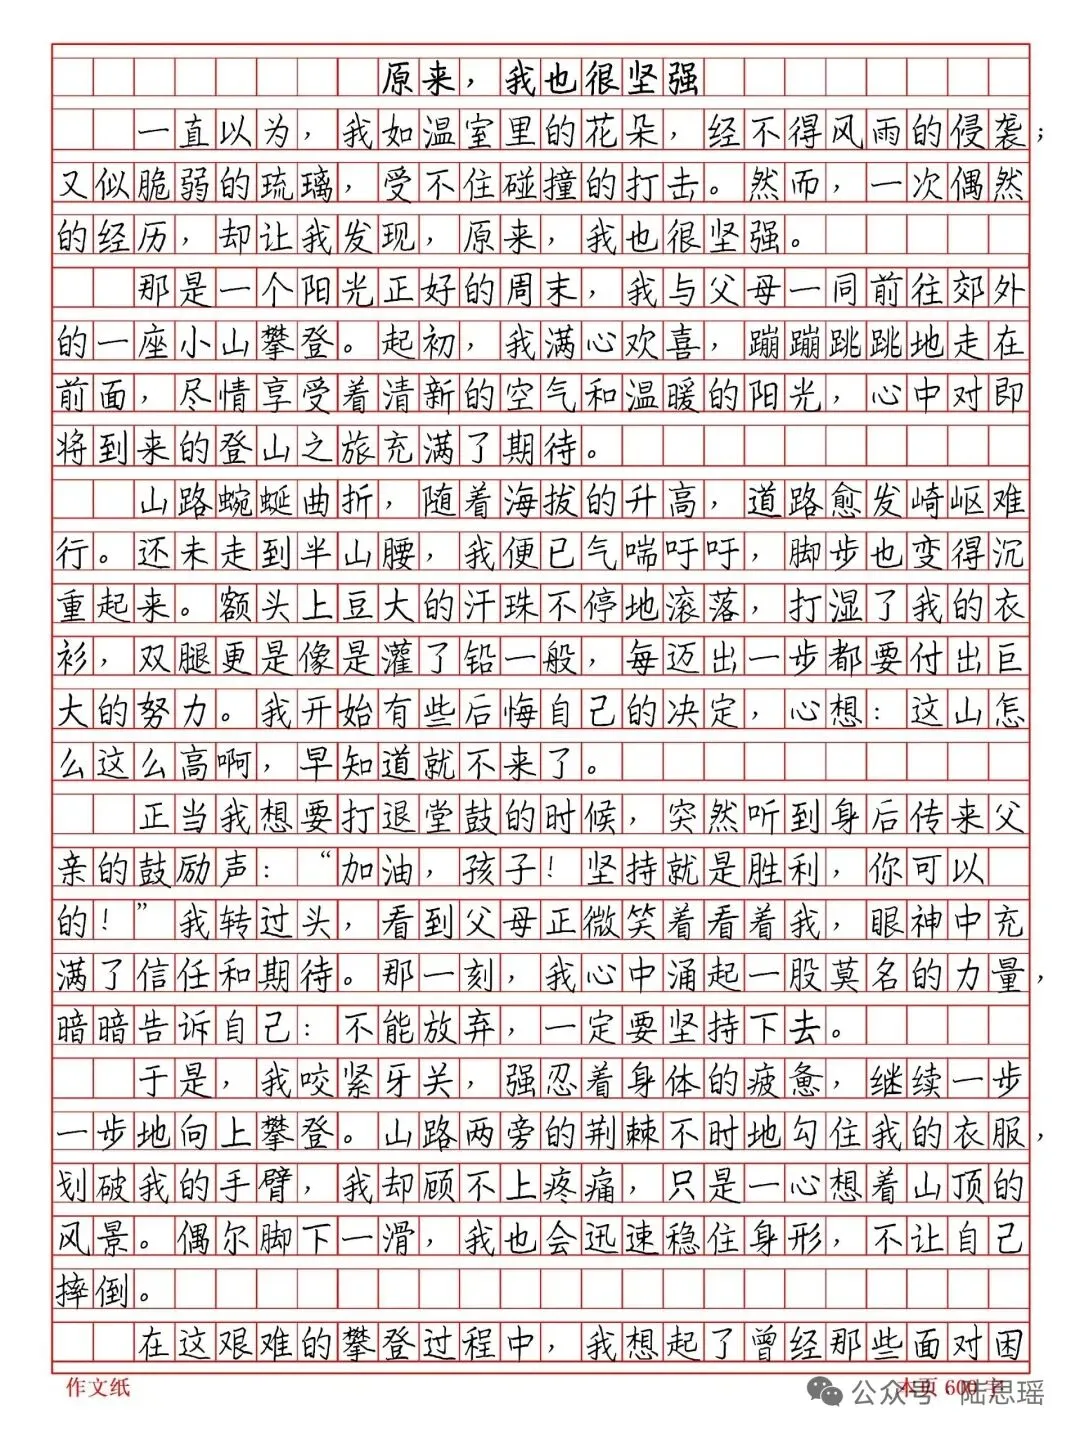 原来，我也很坚强
一直以为，我如温室里的花朵，经不得风雨的侵袭；
又似脆弱的琉璃，受不住碰撞的打击。然而，一次偶然
的经历，却让我发现，原来，我也很坚强。
那是一个阳光正好的周末，我与父母一同前往郊外
的一座小山攀登。起初，我满心欢喜，蹦蹦跳跳地走在
前面，尽情享受着清新的空气和温暖的阳光，心中对即
将到来的登山之旅充满了期待。
山路蜿蜒曲折，随着海拔的升高，道路愈发崎岖难
行。还未走到半山腰，我便已气喘吁吁，脚步也变得沉
重起来。额头上豆大的汗珠不停地滚落，打湿了我的衣
衫，双腿更是像是灌了铅一般，每迈出一步都要付出巨
大的努力。我开始有些后悔自己的决定，心想：这山怎
么这么高啊，早知道就不来了。
正当我想要打退堂鼓的时候，突然听到身后传来父
亲的鼓励声：“加油，孩子！坚持就是胜利，你可以
的！”我转过头，看到父母正微笑着看着我，眼神中充
满了信任和期待。那一刻，我心中涌起一股莫名的力量，
暗暗告诉自己：不能放弃，一定要坚持下去。
于是，我咬紧牙关，强忍着身体的疲惫，继续一步
一步地向上攀登。山路两旁的荆棘不时地勾住我的衣服，
划破我的手臂，我却顾不上疼痛，只是一心想着山顶的
风景。偶尔脚下一滑，我也会迅速稳住身形，不让自己
摔倒。
在这艰难的攀登过程中，我想起了曾经那些面对困
作文纸
本页 600 字
公众号·陆思瑶